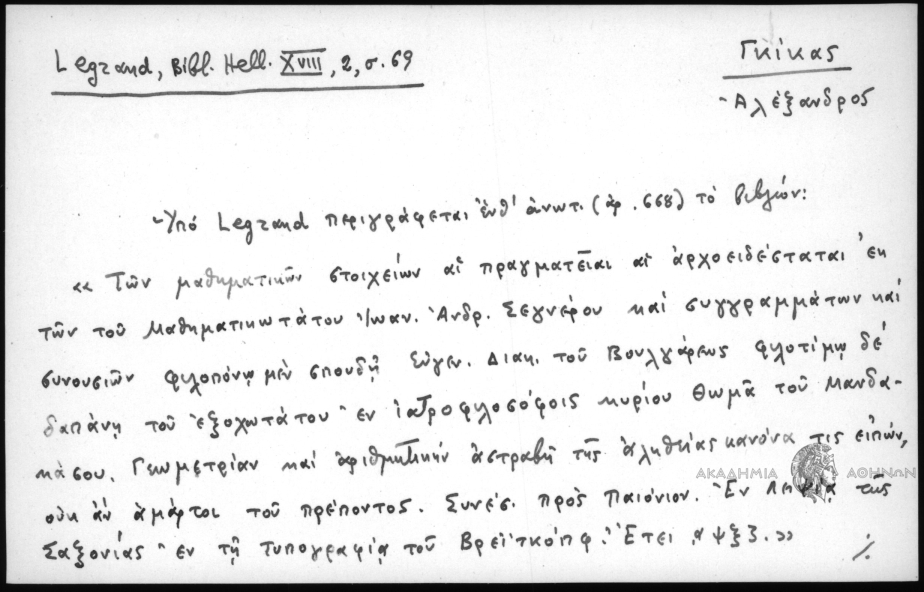 Legrand, Bibl. Hell. XVIII, 2, σ. 69
Γκίκας
Ἀλέξανδρος
Ὑπό Legrand περιγράφεται ἐνθ' ἀνωτ. (ἀρ. 668) τὸ βιβλίον:
« Τῶν μαθηματικῶν στοιχείων αἱ πραγματεῖαι αἱ ἀρχοειδέσταται ἐκ
τῶν τοῦ μαθηματικωτάτου Ἰωαν. Ἀνδρ. Σεγνέρου καί συγγραμμάτων καί
συνουσιῶν φιλοπόνῳ μὲν σπουδῇ Εὐγεν. Διακ. τοῦ Βουλγάρεως φιλοτίμῳ δέ
δαπάνῃ τοῦ ἐξοχωτάτου ἐν ἰατροφιλοσόφοις κυρίου Θωμᾶ τοῦ Μανδα-
κάσου. Γεωμετρίαν καί ἀριθμητικήν ἀστραβῆ τῆς ἀληθείας κανόνα τις εἰπών,
οὐκ ἄν ἁμάρτοι τοῦ πρέποντος. Συνέσ. πρὸς Παιόνιον. Ἐν Λειψίᾳ τῆς
Σαξονίας ἐν τῇ τυπογραφίᾳ τοῦ Βρεϊτκόπφ. Ἔτει ͵αψξζ.»
./.
ΑΚΑΔΗΜΙΑ ΑΘΗΝΩΝ